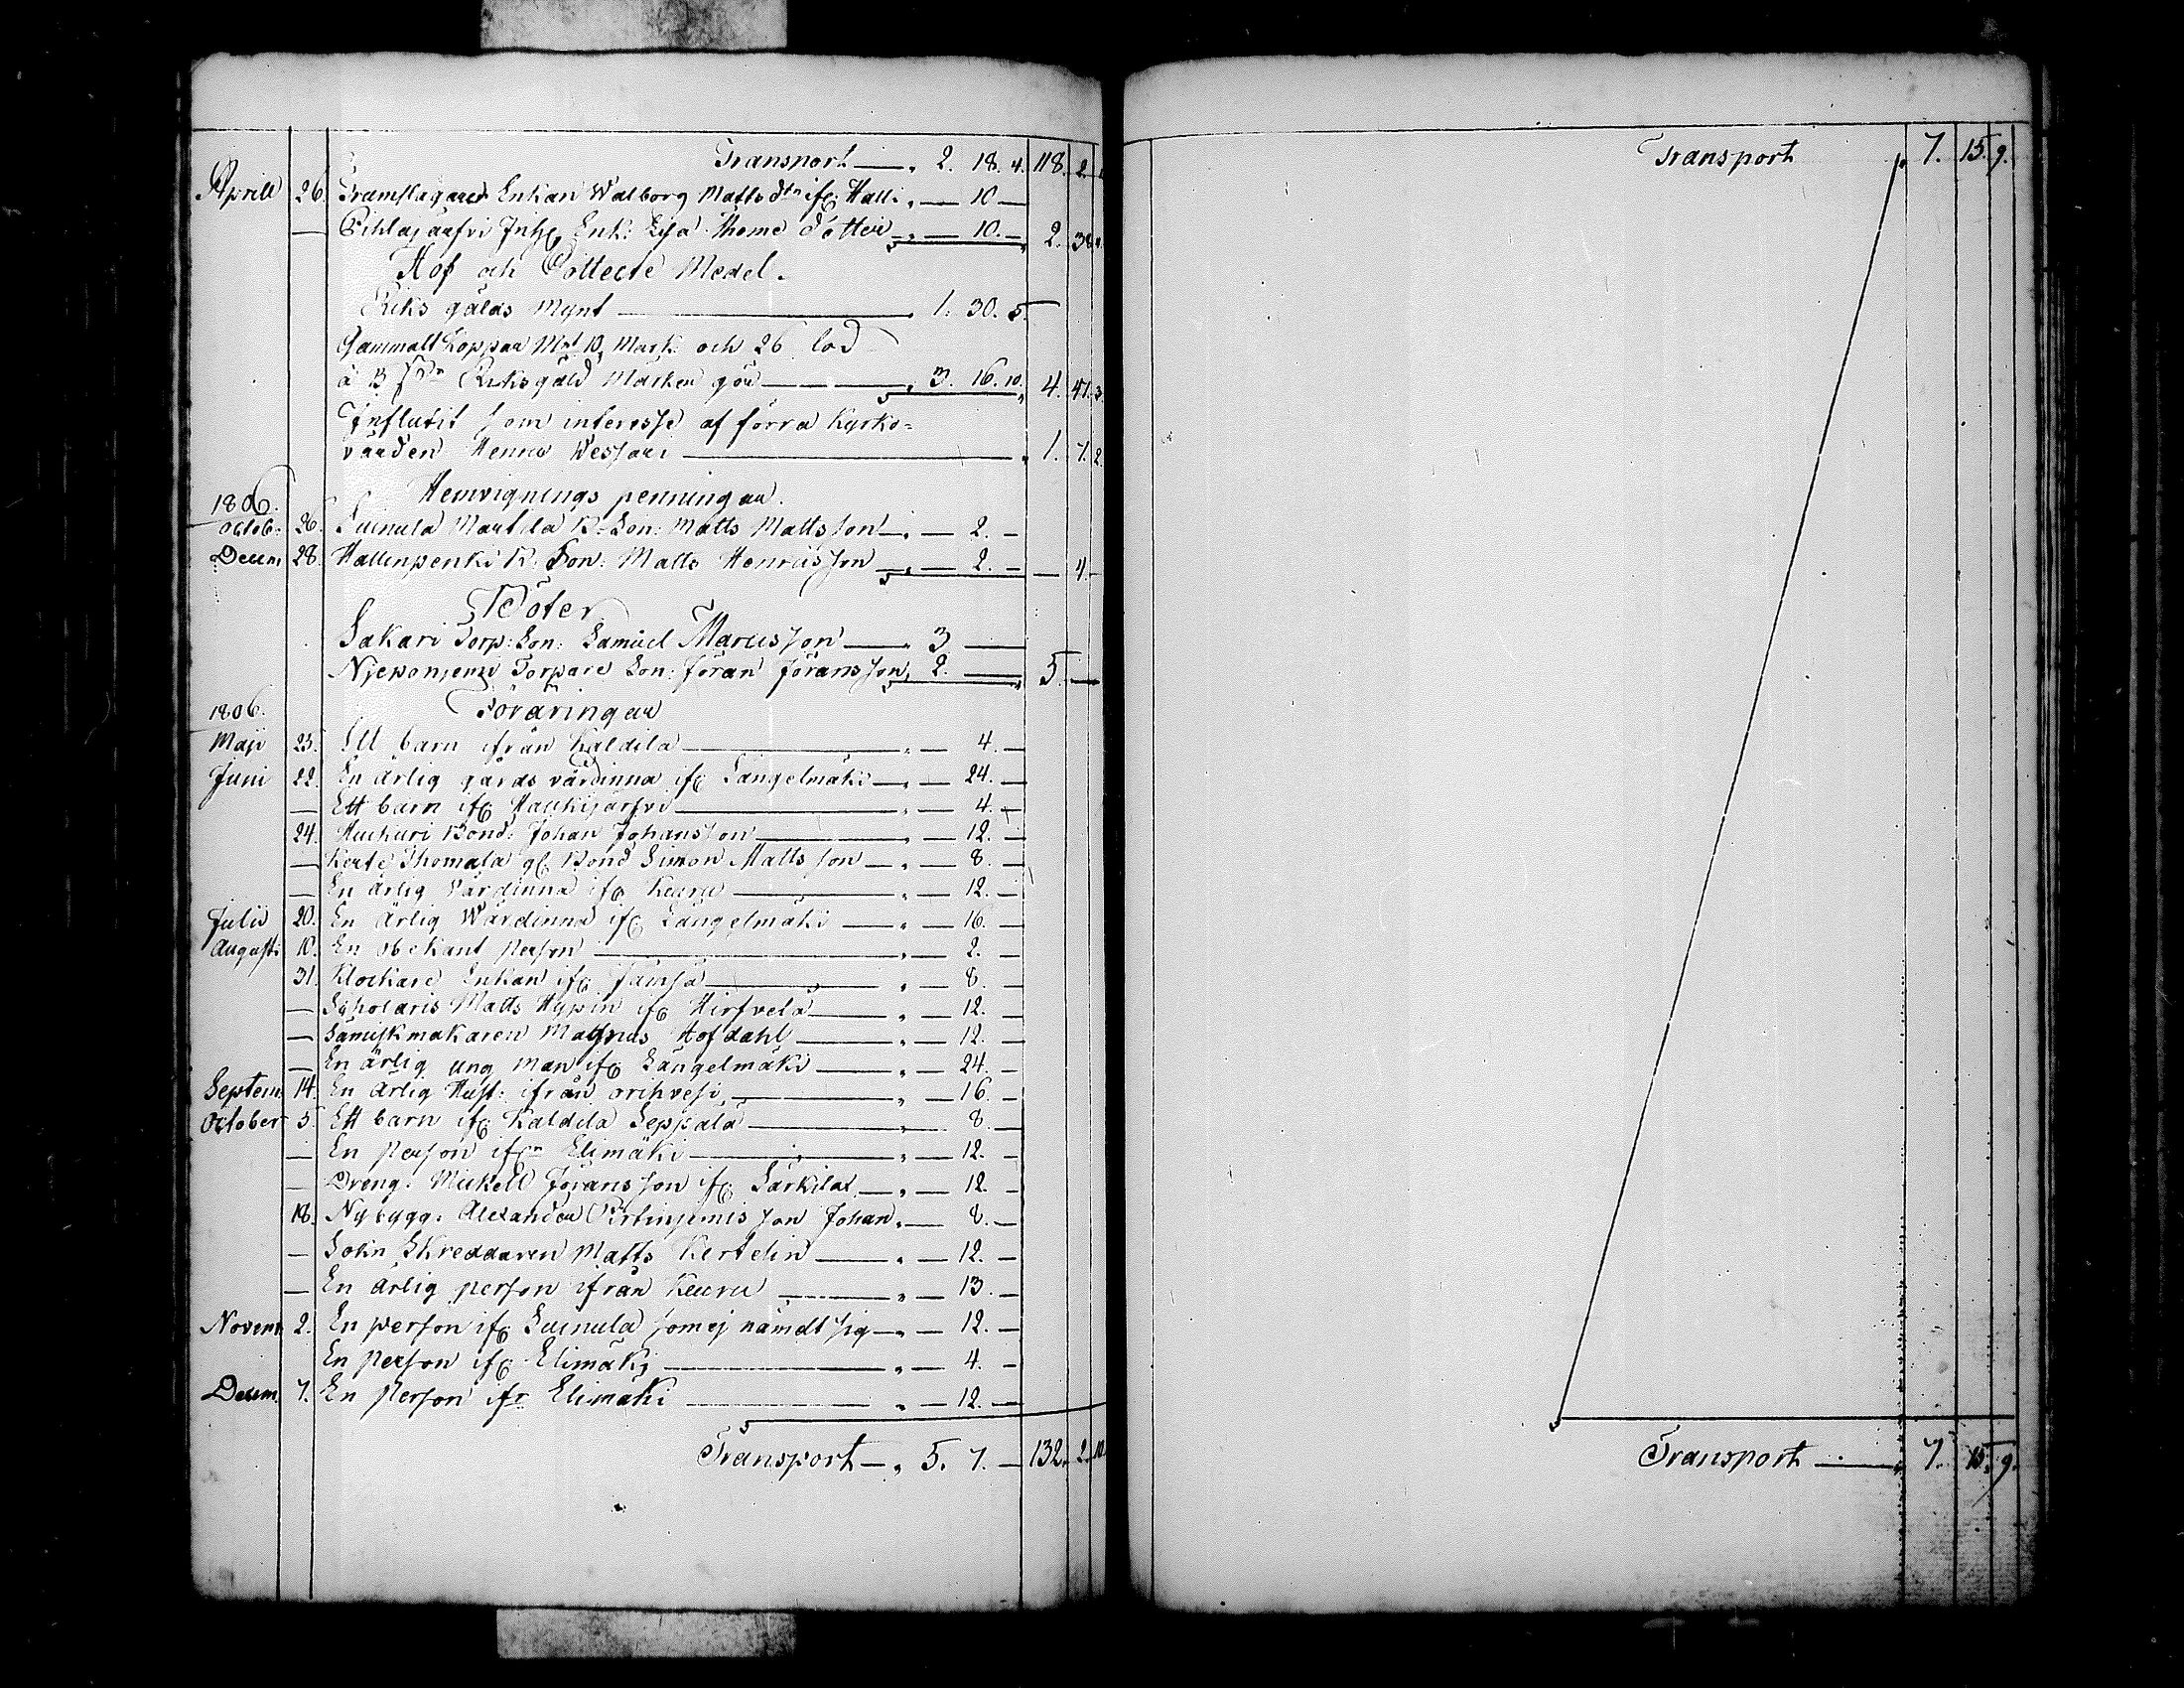 Transport — „ 2. 18. 4. 118. 2.
Aprill 26. Enkan Walborg Matts dtr ifr Halli „ — 10 —
— Pihlajärfvi Enk: Lisa Thome dotter „ — 10. — 2. 38.
Hof och Collecte Medel.
Riks gälds Mynt — „ 1. 30. 5.
Gammalt Koppar Mt 10 Mark: och 26 lod
à 13 Riksgäld Marken gör — „ 3. 16. 10. 4. 47. 3.
Influtit som interesse af förra Kyrko=
värden Henric Wessari — „ 1. 7. 2.
Hemvignings penningar.
1806.
Octob: 26. Suinula Martila B: Son: Matts Mattsson — „ — 2. —
Decem 28. Hallinpenki B: Son: Matts Henricsson — „ — 2. — — 4. —
Böter
Sakari Torp: Son: Samuel Marcusson — „ 3 —
Torpare Son: Jöran Jöransson „ 2. — 5. —
1806. Föräringar
Maji 25. Ett barn ifrån Kaldila — „ — 4. —
Juni 22. En ärlig gårds värdinna ifr Längelmäki — „ — 24. —
— Ett barn ifr Haukijärfvi — „ — 4. —
24. Huhuri Bond: Johan Johansson — „ — 12. —
— Kerte Thomala gl Bond Simon Matts son — „ — 8. —
— En Ärlig Värdinna ifr Keuru — „ — 12. —
Julii 20. En Ärlig Wärdinna ifr Längelmäki — „ — 16. —
Augusti 10. En obekant Person — „ — 2. —
31. Klockare Enkan ifr Jämsä — „ — 8. —
— Scholaris Matts Hypin ifr Hirfvelä — „ — 12. —
— Sämiskmakaren Magnus Hofdahl — „ — 12. —
— En ärlig ung man ifr Längelmäki — „ — 24. —
Septem: 14. En ärlig Hust: ifrån orihvesi — „ — 16. —
October 5. Ett barn ifr Kaldila Seppälä — „ 8. —
— En Person ifrn Elimäki — „ — 12. —
— Dreng: Mickell Jöransson ifr Särkilax — „ — 12. —
18. Nybygg: Alexander son Johan „ — 8. —
— Sokn Skreddaren Matts Kertelin — „ — 12. —
— En ärlig person ifrån Keuru — „ — 13. —
Novem 2. En person ifr Suinula som ej nämdt sig — „ — 12. —
En Person ifr Elimäki — „ — 4. —
Decem. 7. En Person ifr Elimäki — „ — 12. —
Transport — „ 5. 7. — 132. 2. 10.
Transport „ 7. 15. 9.
Transport — „ 7. 15. 9.